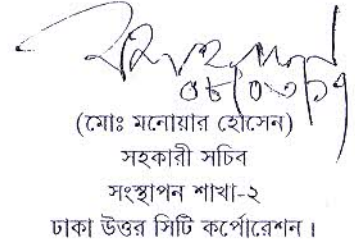 ০৮/০৩/১৭
(মোঃ মনোয়ার হোসেন)
সহকারী সচিব
সংস্থাপন শাখা-২
ঢাকা উত্তর সিটি কর্পোরেশন।